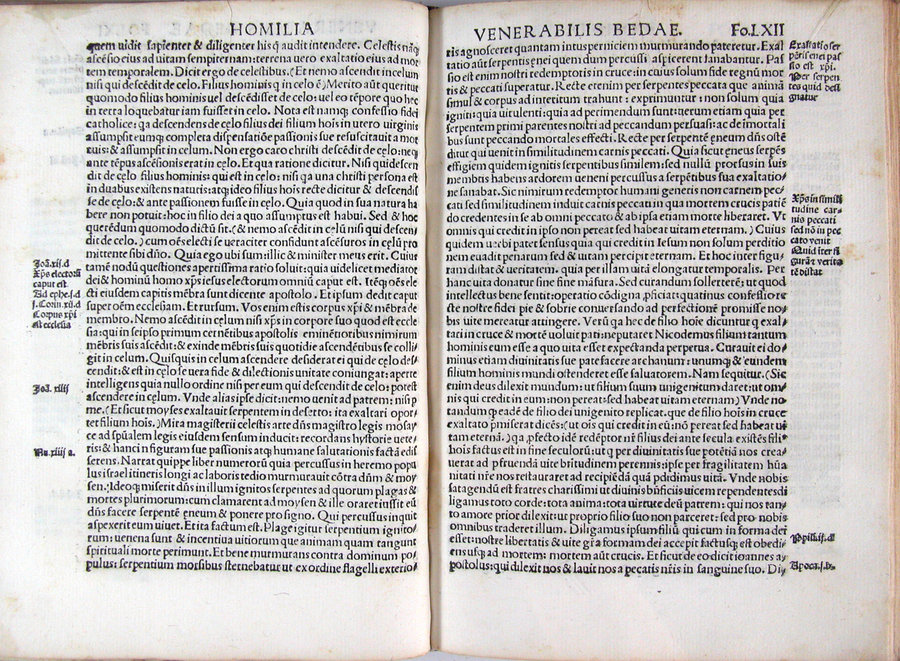 HOMILIA
quem uidit sapienter & diligenter his q̃ audit intendere. Celestis nãq;
ascẽsio eius ad uitam sempiternam: terrena uero exaltatio eius ad mor
tem temporalem. Dicit ergo de celestibus. (Et nemo ascendit in celum
nisi qui descẽdit de celo. Filius hominis q̃ in celo ẽ) Merito aũt queritur
quomodo filius hominis uel descẽdisset de celo: uel eo tẽpore quo hec
in terra loquebatur iam fuisset in celo. Nota est namq; confessio fidei
catholice: q̃a descendens de celo filius dei filium hoĩs in utero uirginis
assumpsit eumq; completa dispensatiõe passionis sue resuscitauit a mor
tuis: & assumpsit in celum. Non ergo caro christi descẽdit de celo: neq;
ante tẽpus ascẽsionis erat in cęlo. Et qua ratione dicitur. Nisi qui descen
dit de cęlo filius hominis: qui est in celo: nisi q̃a una christi persona est
in duabus existens naturis: atq; ideo filius hoĩs recte dicitur & descendis
se de cęlo: & ante passionem fuisse in cęlo. Quia quod in sua natura ha
bere non potuit: hoc in filio dei a quo assumptus est habui. Sed & hoc
querẽdum quomodo dictũ sit. (& nemo ascẽdit in cęlũ nisi qui descen
dit de celo.) cum oẽs electi se ueraciter confidunt ascẽsuros in cęlũ pro
mittente sibi dño. Quia ego ubi sum: illic & minister meus erit. Cuius
tamẽ nodũ questiones apertissima ratio soluit: quia uidelicet mediator
dei & hominũ homo xp̃s iesus electorum omniũ caput est. Itẽq; oẽs ele
cti eiusdem capitis mẽbra sunt dicente apostolo. Et ipsum dedit caput
super oẽm ecclesiam. Et rursum. Vos enim estis corpus xp̃i & mẽbra de
membro. Nemo ascẽdit in cęlum nisi xp̃s in corpore suo quod est eccle
sia: qui in seipso primum cernẽtibus apostolis eminẽtioribus nimirum
mẽbris suis ascẽdit: & exinde mẽbris suis quotidie ascendẽtibus se colli
git in celum. Quisquis in celum ascendere desiderat ei qui de cęlo des
cendit: & est in cęlo se uera fide & dilectionis unitate coniungat: aperte
intelligens quia nullo ordine nisi per eum qui descendit de celo: potest
ascendere in cęlum. Vnde alias ipse dicit: nemo uenit ad patrem: nisi p
me. (Et sicut moyses exaltauit serpentem in deserto: ita exaltari opor
tet filium hoĩs.) Mira magisterii celestis arte dñs magistrũ legis mosay
ce ad sp̃ualem legis eiusdem sensum inducit: recordans hystorię uete
ris: & hanc in figuram sue passionis atq; humane salutationis factã edis
serens. Narrat quippe liber numerorũ quia percussus in heremo popu
lus israel itineris longi ac laboris tedio murmurauit cõtra dñm & moy
sen. Ideoq; miserit dñs in illum ignitos serpentes ad quorum plagas &
mortes plurimorum: cum clamarent ad moysen & ille oraret iussit eũ
dñs facere serpentẽ ęneum & ponere pro signo. Qui percussus inquit
aspexerit eum uiuet. Et ita factum est. Plage igitur serpentium ignito
rum: uenena sunt & incentiua uitiorum que animam quam tangunt
spirituali morte perimunt. Et bene murmurans contra dominum po
pulus: serpentium morsibus sternebatur ut ex ordine flagelli exterio
Joã.xij.d
Xp̃s electorũ
caput est.
Ad ephe.j.d
j.Corin.xij.d
Corpus xp̃i
est ecclesia
Joã. xiiij
Nu.xiiij a.
VENERABILIS BEDAE. Fo.LXII
ris agnosceret quantam intus perniciem murmurando pateretur. Exal
tatio aũt serpentis enei quem dum percussi aspicerent sanabantur. Pas
sio est enim nostri redemptoris in cruce: in cuius solum fide regnũ mor
tis & peccati superatur. Recte etenim per serpentes peccata que animã
simul & corpus ad interitum trahunt: exprimuntur: non solum quia
igniti: quia uirulenti: quia ad perimendum sunt: uerum etiam quia per
serpentem primi parentes nostri ad peccandum persuasi: ac de immortali
bus sunt peccando mortales effecti. Recte per serpentẽ ęneum dñs ostẽ
ditur qui uenit in similitudinem carnis peccati. Quia sicut ęneus serpẽs
effigiem quidem ignitis serpentibus similem: sed nullũ prorsus in suis
membris habens ardorem ueneni percussus a serpẽtibus sua exaltatio
ne sanabat. Sic nimirum redemptor humani generis non carnem pec
cati sed similitudinem induit carnis peccati in qua mortem crucis patiẽ
do credentes in se ab omni peccato & ab ipsa etiam morte liberaret. Vt
omnis qui credit in ipsum non pereat sed habeat uitam eternam.) Cuius
quidem uerbi patet sensus quia qui credit in Iesum non solum perditio
nem euadit penarum sed & uitam percipit eternam. Et hoc inter figu
ram distat & ueritatem. quia per illam uitã elongatur temporalis. Per
hanc uita donatur sine fine mãsura. Sed curandum sollerter ẽ: ut quod
intellectus bene sentit: operatio cõdigna pficiat quatinus confessio re
ctę nostre fidei pie & sobrie conuersando ad perfectionẽ promisse no
bis uite mereatur attingere. Verũ q̃a hec de filio hoĩs dicuntur q̃ exal
tari in cruce & mortẽ uoluit pati: ne putaret Nicodemus filium tantum
hominis eum esse a quo uita esset expectanda perpetua. Curauit ei do
minus etiam diuinitatis sue patefacere archanum: unumq; & eundem
filium hominis mundi ostendere esse saluatorem. Nam sequitur. (Sic
enim deus dilexit mundum: ut filium suum unigenitum daret: ut om
nis qui credit in eum: non pereat sed habeat uitam eternam.) Vnde no
tandum q̃ eadẽ de filio dei unigenito replicat. que de filio hoĩs in cruce
exaltato p̃miserat dicẽs: (ut oĩs qui credit in eũ: nõ pereat sed habeat ui
tam eternã.) q̃a p̃fecto idẽ redẽptor ñr filius dei ante secula existẽs filiꝰ
hoĩs factus est in fine seculorũ: ut q̃ per diuinitatis sue potẽtiã nos crea
uerat ad pfruendã uite britudinem perennis: ipse per fragilitatem huã
nitati ñre nos restauraret ad recipiẽdã quã pdidimus uitã. Vnde nobis
satagendũ est fratres charissimi ut diuinis bñficiis uicem rependentes di
ligamus toto corde: tota anima: tota uirtute deũ patrem: qui nos tan
to amore prior dilexit: ut proprio filio suo non parceret: sed pro nobis
omnibus traderet illum. Diligamus ipsum filiũ qui cum in forma dei
esset: nostre libertatis & uite grã formam dei accepit factusq; est obedi
ens usq; ad mortem: mortem aũt crucis. Et sicut de eo dicit ioannes a
postolus: qui dilexit nos & lauit nos a pecatis nr̃is in sanguine suo. Di
Exaltatio ser
pẽtis enei pas
sio est xp̃i.
Per serpen
tes quid desi
gnatur
Xp̃s in simili
tudine car
nis peccati
sed nõ in pec
cato venit
Quid iter fi
gurã & verita
tẽ distat
Phil.ij.d
Apoca.j.b.